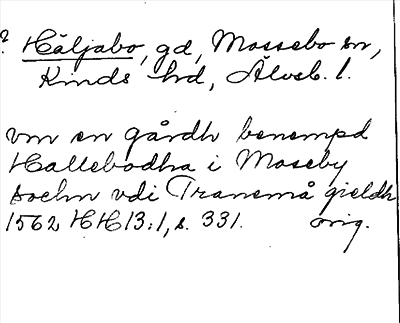 ? Häljabo, gd, Mossebo sn,
Kinds hrd, Älvsb. l.
vm en gårdh benempd
Hallebodha i Moseby
sochn vdi Tranemå gieldh
1562 HH 13:1, s. 331. orig.